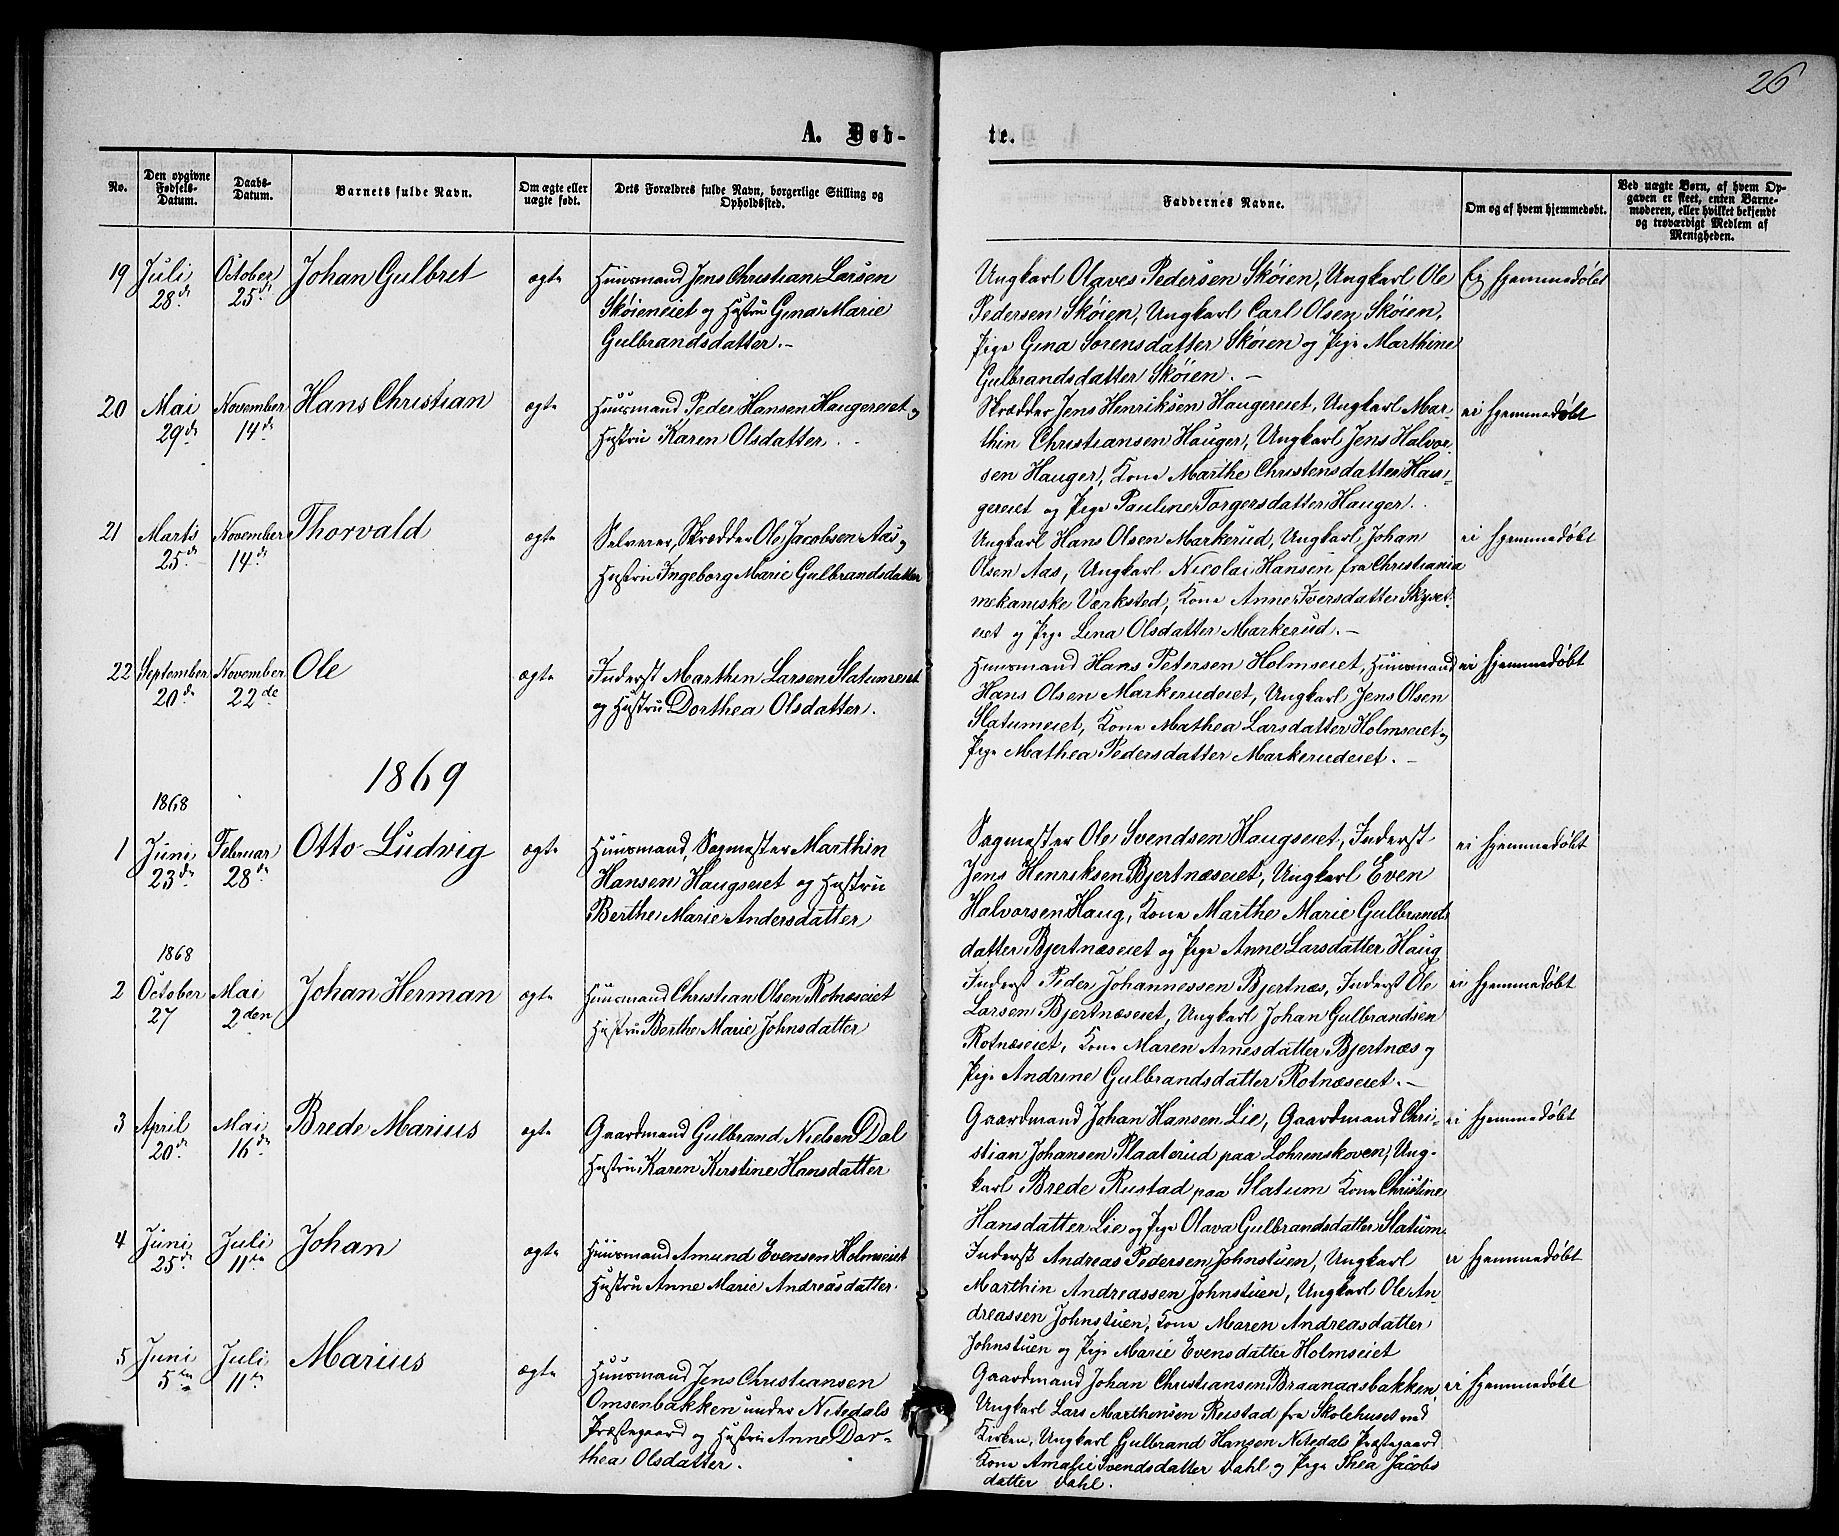 26
A. Døb-
te.
No.
Den opgivne Fødsels-Datum.
Daabs-Datum.
Barnets fulde Navn.
Om ægte eller uægte født.
Dets Forældres fulde Navn, borgerlige Stilling og Opholdssted.
Faddernes Navne.
Om og af hvem hjemmedøbt.
Ved uægte Børn, af hvem Opgaven er skeet, enten Barnemoderen, eller hvilket bekjendt og troværdigt Medlem af Menigheden.
19 Juli 28de October 25de Johan Gulbret ægte
Huusmand Jens Christian Larsen
Skøieneiet og Hustru Gina Marie
Gulbrandsdatter.-
Ungkarl Olaves Pedersen Skøien, Ungkarl Ole
Pedersen Skøien, Ungkarl Carl Olsen Skøien,
Pige Gina Sørensdatter Skøien og Pige Marthine
Gulbrandsdatter Skøien.-
Ej hjemmedøbt
20 Mai 29de November 14de Hans Christian ægte
Huusmand Peder Hansen Haugereiet og
Hustru Karen Olsdatter.
Skrædder Jens Henriksen Haugereiet, Ungkarl Mar-
thin Christiansen Hauger, Ungkarl Jens Halvor-
sen Hauger, Kone Marthe Christensdatter Hau-
gereiet og Pige Pauline Torgersdatter Hauger.
ei hjemmedøbt
21 Marts 25de November 14de Thorvald ægte
Selveier, Skrædder Ole Jacobsen Aas og
Hustru Ingeborg Marie Gulbrandsdatter
Ungkarl Hans Olsen Markerud, Ungkarl Johan
Olsen Aas, Ungkarl Nicolai Hansen fra Christiania
mekaniske Værksted, Kone Anne Iversdatter Skyset-
eiet og Pige Lina Olsdatter Markerud.-
ei hjemmedøbt
22 September 20de November 22de Ole ægte
Inderst Marthin Larsen Slatumeiet
og Hustru Dorthea Olsdatter.
Huusmand Hans Petersen Holmseiet, Huusmand
Hans Olsen Markerudeiet, Ungkarl Jens Olsen
Slatumeiet, Kone Mathea Larsdatter Holmseiet og
Pige Mathea Pedersdatter Markerudeiet.-
ei hjemmedøbt
1869
1868
1 Juni 23de Februar 28de Otto Ludvig ægte
Huusmand, Sagmester Marthin
Hansen Haugseiet og Hustru
Berthe Marie Andersdatter
Sagmester Ole Svendsen Haugseiet, Inderst
Jens Henriksen Bjertnæseiet, Ungkarl Even
Halvorsen Haug, Kone Marthe Marie Gulbrands
datter Bjertnæseiet og Pige Anne Larsdatter Haug
ei hjemmedøbt
1868
2 October 27 Mai 2den Johan Herman ægte
Huusmand Christian Olsen Rotnæseiet
Hustru Berthe Marie Johnsdatter
Inderst Peder Johannessen Bjertnæs, Inderst Ole
Larsen Bjertnæseiet, Ungkarl Johan Gulbrandsen
Rotnæseiet, Kone Maren Arnesdatter Bjertnæs og
Pige Andrine Gulbrandsdatter Rotnæseiet.-
ei hjemmedøbt
3 April 20de Mai 16de Brede Marius ægte
Gaardmand Gulbrand Nielsen Dal
Hustru Karen Kirstine Hansdatter
Gaardmand Johan Hansen Lie, Gaardmand Chri-
stian Johansen Plaaterud paa Løhrenskoven, Ung-
karl Brede Rustad paa Slatum Kone Christine
Hansdatter Lie og Pige Olava Gulbrandsdatter Slatum
ei hjemmedøbt
4 Juni 25de Juli 11te Johan ægte
Huusmand Amund Evensen Holmseiet
Hustru Anne Marie Andreasdatter.
Inderst Andreas Pedersen Johnstuen, Ungkarl
Marthin Andreassen Johnstuen, Ungkarl Ole An-
dreassen Johnstuen, Kone Maren Andreasdatter
Johnstuen og Pige Marie Evensdatter Holmseiet
ei hjemmedøbt
5 Juni 5te Juli 11te Marius ægte
Huusmand Jens Christiansen
Omsenbakken under Nitedals
Præstegaard og Hustru Anne Dor-
thea Olsdatter.
Gaardmand Johan Christiansen Braanaasbakken,
Ungkarl Lars Marthensen Rustad fra Skolehuset ved
Kirken, Ungkarl Gulbrand Hansen Nitedals Præstegaard
Kone Amalie Svendsdatter Dahl og Pige Thea Jacobs
datter Dahl.
ei hjemmedøbt